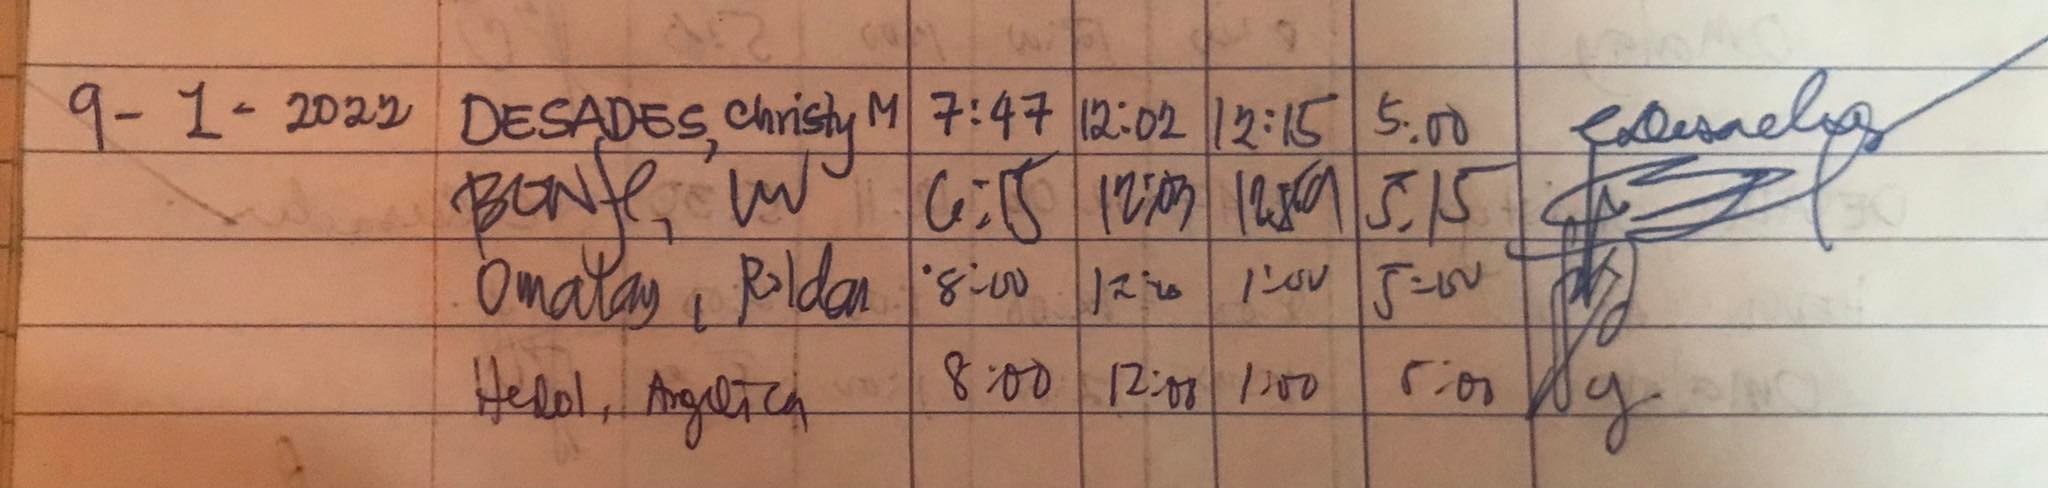 9-1-2022 DESADES, Christy M 7:47 12:02 12:15 5:00
6:15 12:03 12:59 5:15
Omatay, Roldan 8:00 12:00 1:00 5:00
Angelica 8:00 12:00 1:00 5:00